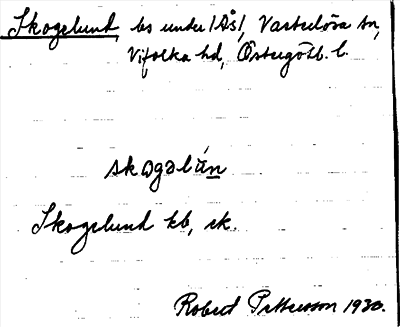 Skogelund, bs under /Ås/, Västerlösa sn,
Vifolka hd, Östergötl. l.
skogəlún
Skogelund kb, rk.
Robert Pettersson 1930.